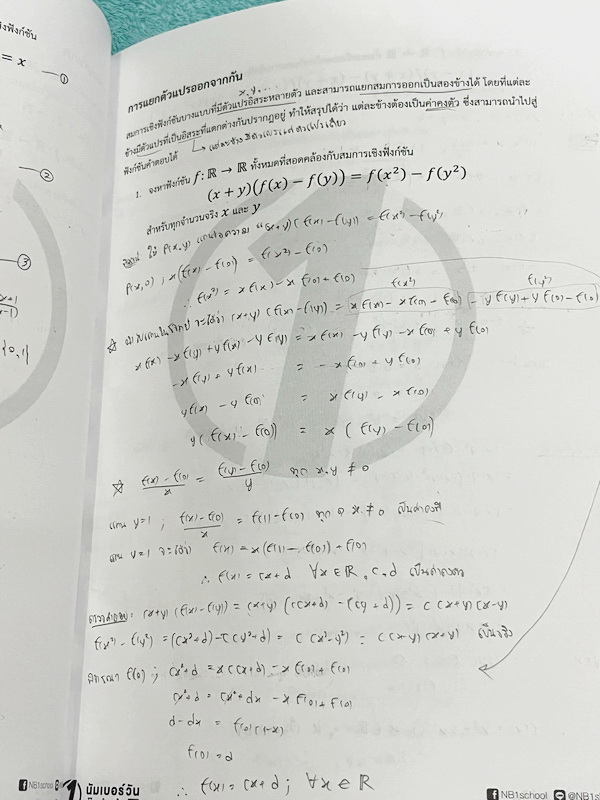 ชิงฟังก์ชัน
= x
①
②
③
การแยกตัวแปรออกจากกัน
x, y, ...
สมการเชิงฟังก์ชันบางแบบที่มีตัวแปรอิสระหลายตัว และสามารถแยกสมการออกเป็นสองข้างได้ โดยที่แต่ละ
ข้างมีตัวแปรที่เป็นอิสระที่แตกต่างกันปรากฏอยู่ ทำให้สรุปได้ว่า แต่ละข้างต้องเป็นค่าคงตัว ซึ่งสามารถนำไปสู่
ฟังก์ชันคำตอบได้
1. จงหาฟังก์ชัน f: ℝ → ℝ ทั้งหมดที่สอดคล้องกับสมการเชิงฟังก์ชัน
(x + y)(f(x) − f(y)) = f(x²) − f(y²)
สำหรับทุกจำนวนจริง x และ y
ให้ P(x,y) แทนข้อความ "(x+y)(f(x)-f(y)) = f(x²)-f(y²)
P(x,0) ; x(f(x)-f(0)) = f(x²)-f(0)
∴ f(x²) = x f(x) - x f(0) + f(0)
f(x²) f(y²)
จะได้ว่า (x+y)(f(x)-f(y)) = x f(x) - x f(0) + f(0) - y f(y) + y f(0) - f(0)
x f(x) - x f(y) + y f(x) - y f(y) = x f(x) - y f(y) - x f(0) + y f(0)
-x f(y) + y f(x) = -x f(0) + y f(0)
y f(x) - y f(0) = x f(y) - x f(0)
y (f(x) - f(0)) = x (f(y) - f(0))
☆ f(x)-f(0) / x = f(y)-f(0) / y ทุก x,y ≠ 0
แทน y=1 ; f(x)-f(0) / x = f(1)-f(0) ทุก x ≠ 0 เป็นค่าคงที่
แทน y=1 จะได้ว่า f(x) = x(f(1) - f(0)) + f(0)
∴ f(x) = cx+d ∀x∈ℝ, c,d เป็นค่าคงตัว
ตรวจคำตอบ: (x+y)(f(x)-f(y)) = (x+y)((cx+d) - (cy+d)) = c(x+y)(x-y)
f(x²) - f(y²) = (cx²+d) - (cy²+d) = c(x²-y²) = c(x-y)(x+y) เป็นจริง
f(0) ; cx²+d = x(cx+d) - x f(0) + f(0)
cx²+d = cx²+dx - x f(0) + f(0)
d-dx = f(0)(1-x)
f(0) = d
∴ f(x) = cx+d ; ∀x∈ℝ
NB1school
นัมเบอร์วัน
NB1school @NB1s